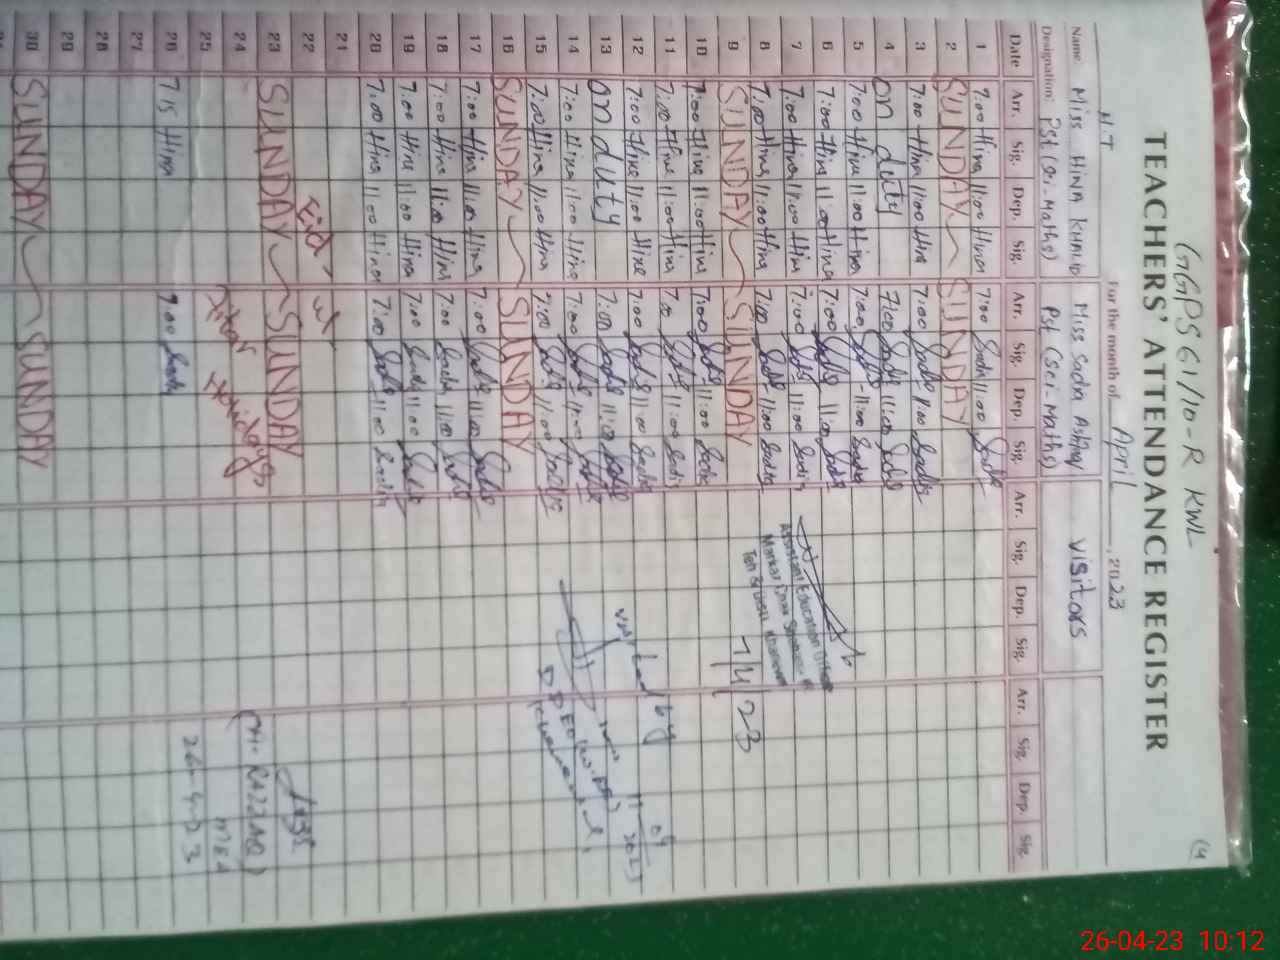 GGPS 61/10-R KWL
14
TEACHERS' ATTENDANCE REGISTER
H.T For the month of April, 2023
Name Miss Hina Khalid Miss Sadia Ashraf visitors
Designation: Pst (Sci-Maths) Pst (Sci-Maths)
Date Arr. Sig. Dep. Sig. Arr. Sig. Dep. Sig. Arr. Sig. Dep. Sig. Arr. Sig. Dep. Sig.
1 7:00 Hina 11:00 Hina 7:00 Sadia 11:00 Sadia
2 SUNDAY SUNDAY
3 7:00 Hina 11:00 Hina 7:00 Sadia 11:00 Sadia
4 on duty 7:00 Sadia 11:00 Sadia
5 7:00 Hina 11:00 Hina 7:00 Sadia 11:00 Sadia
6 7:00 Hina 11:00 Hina 7:00 Sadia 11:00 Sadia
7 7:00 Hina 11:00 Hina 7:00 Sadia 11:00 Sadia
Assistant Education Officer
8 7:00 Hina 11:00 Hina 7:00 Sadia 11:00 Sadia
Markaz
9 SUNDAY SUNDAY
7/4/23
10 7:00 Hina 11:00 Hina 7:00 Sadia 11:00 Sadia
11 7:00 Hina 11:00 Hina 7:00 Sadia 11:00 Sadia
12 7:00 Hina 11:00 Hina 7:00 Sadia 11:00 Sadia
by 11/04/2023
13 on duty 7:00 Sadia 11:00 Sadia
14 7:00 Hina 11:00 Hina 7:00 Sadia 11:00 Sadia
15 7:00 Hina 11:00 Hina 7:00 Sadia 11:00 Sadia
16 SUNDAY SUNDAY
17 7:00 Hina 11:00 Hina 7:00 Sadia 11:00 Sadia
18 7:00 Hina 11:00 Hina 7:00 Sadia 11:00 Sadia
19 7:00 Hina 11:00 Hina 7:00 Sadia 11:00 Sadia
20 7:00 Hina 11:00 Hina 7:00 Sadia 11:00 Sadia
21
22 Eid-ul
23 SUNDAY SUNDAY
24 Fitar Holidays
25
(M. RAZZAQ)
MEA
26-4-23
26 7:15 Hina 7:00 Sadia
27
28
29
30 SUNDAY SUNDAY
26-04-23 10:12